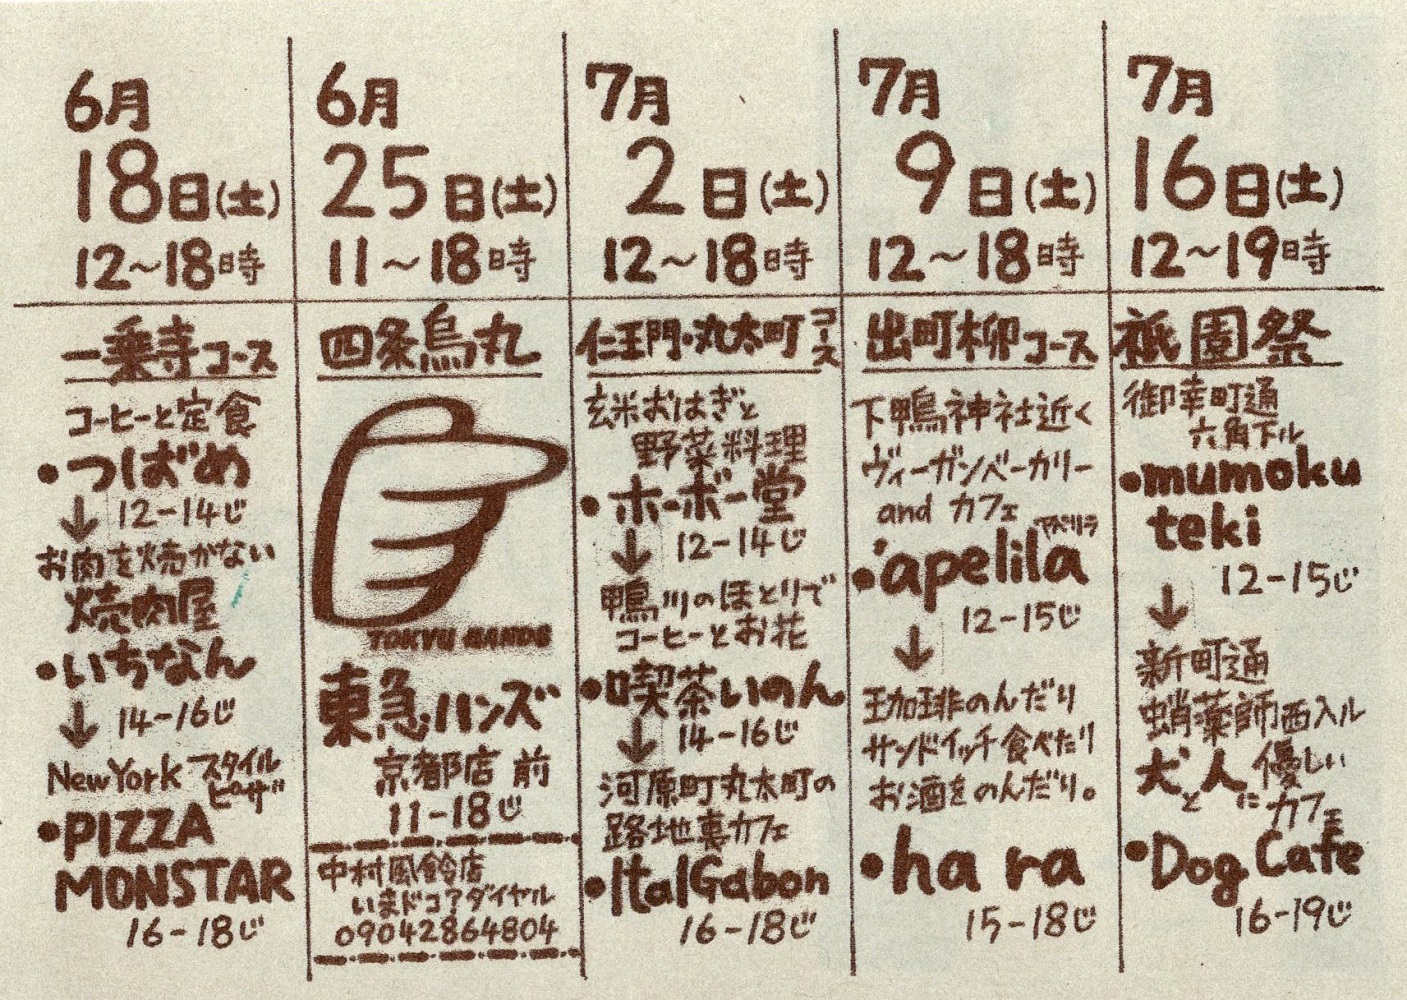 6月
18日(土)
12〜18時
一乗寺コース
コーヒーと定食
・つばめ
↓ 12-14じ
お肉を焼かない
焼肉屋
・いちなん
↓ 14-16じ
NewYork スタイル
ピーザ
・PIZZA
MONSTAR
16-18じ
6月
25日(土)
11〜18時
四条烏丸
TOKYU HANDS
東急ハンズ
京都店 前
11-18じ
中村風鈴店
いまドコ?ダイヤル
09042864804
7月
2日(土)
12〜18時
仁王門・丸太町コース
玄米おはぎと
野菜料理
・ホーボー堂
↓ 12-14じ
鴨川のほとりで
コーヒーとお花
・喫茶いのん
↓ 14-16じ
河原町丸太町の
路地裏カフェ
・ItalGabon
16-18じ
7月
9日(土)
12〜18時
出町柳コース
下鴨神社近く
ヴィーガンベーカリー
and カフェ
アペリラ
・'apelila
12-15じ
↓
珈琲のんだり
サンドイッチ食べたり
お酒をのんだり。
・ha ra
15-18じ
7月
16日(土)
12〜19時
祇園祭
御幸町通
六角下ル
・mumoku
teki
12-15じ
↓
新町通
蛸薬師西入ル
犬と人に優しい
カフェ
・Dog Cafe
16-19じ